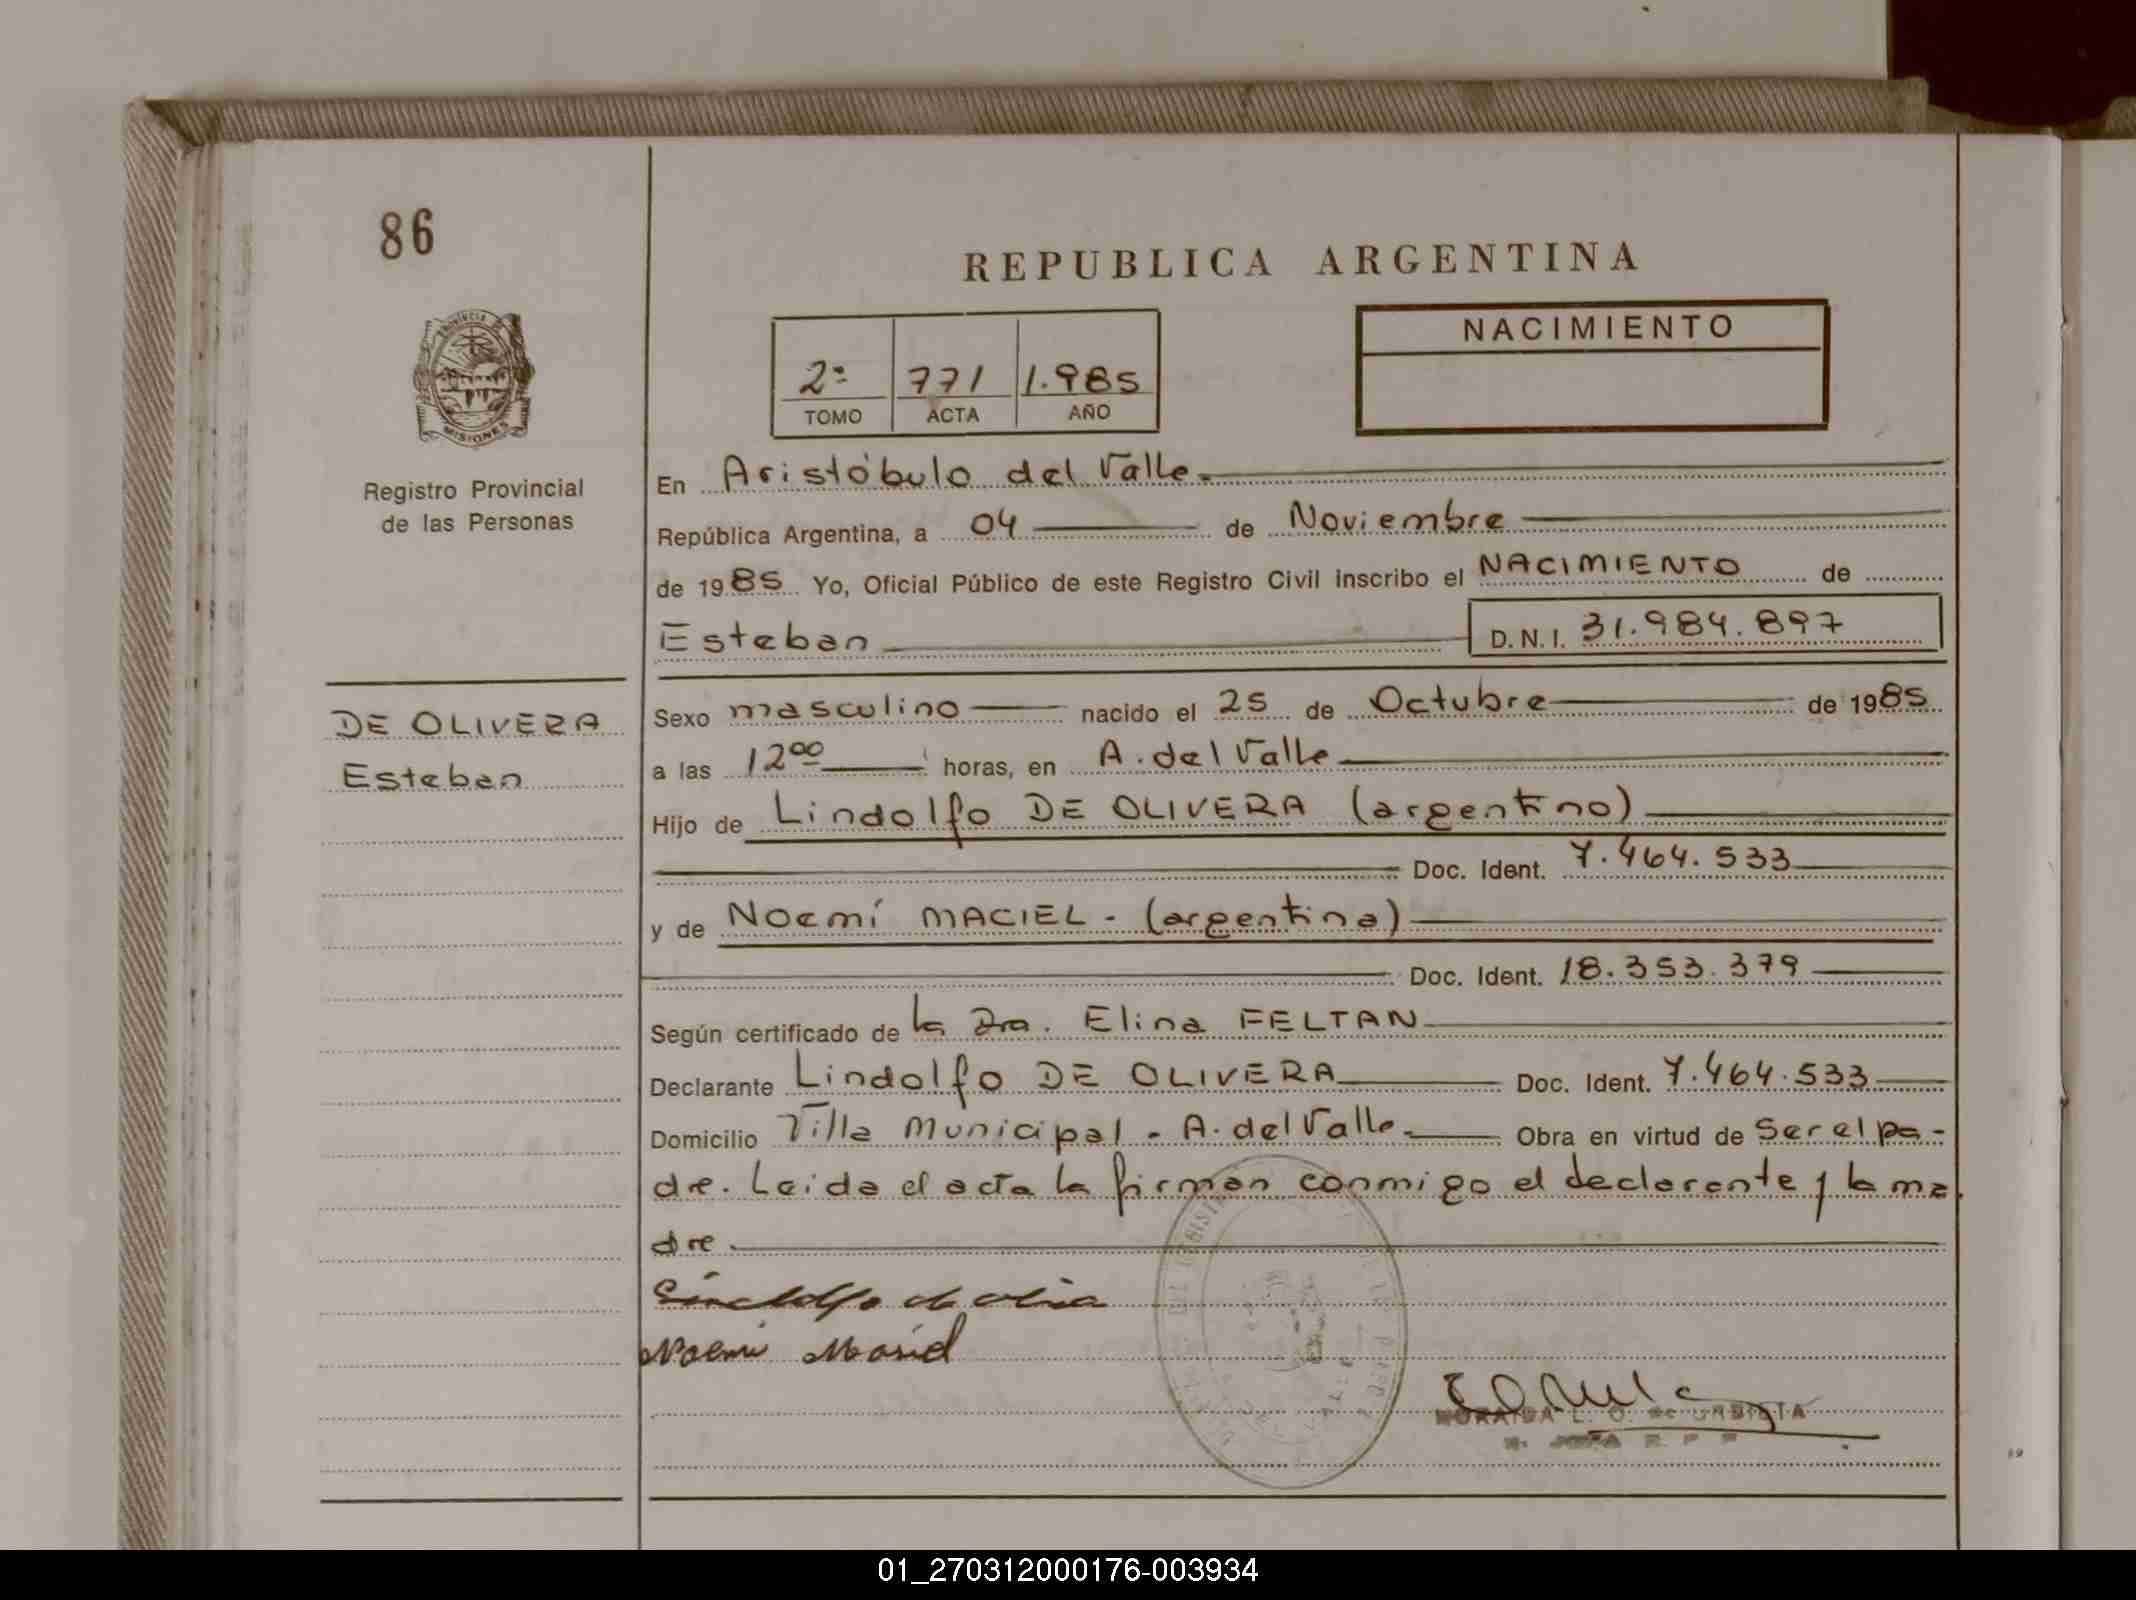 86
REPUBLICA ARGENTINA
PROVINCIA DE
MISIONES
2º 771 1.985
TOMO ACTA AÑO
NACIMIENTO
Registro Provincial
de las Personas
En Aristóbulo del Valle.
República Argentina, a 04 de Noviembre
de 1985 Yo, Oficial Público de este Registro Civil inscribo el NACIMIENTO de
Esteban D.N.I. 31.984.897
DE OLIVERA
Esteban
Sexo masculino nacido el 25 de Octubre de 1985
a las 12 00 horas, en A. del Valle
Hijo de Lindolfo DE OLIVERA (argentino)
Doc. Ident. 7.464.533
y de Noemí MACIEL - (argentina)
Doc. Ident. 18.353.379
Según certificado de la Dra. Elina FELTAN
Declarante Lindolfo DE OLIVERA Doc. Ident. 7.464.533
Domicilio Villa Municipal - A. del Valle. Obra en virtud de ser el pa-
dre. Leida el acta la firman conmigo el declarante y la ma
dre
Noemi Masiel
01_270312000176-003934